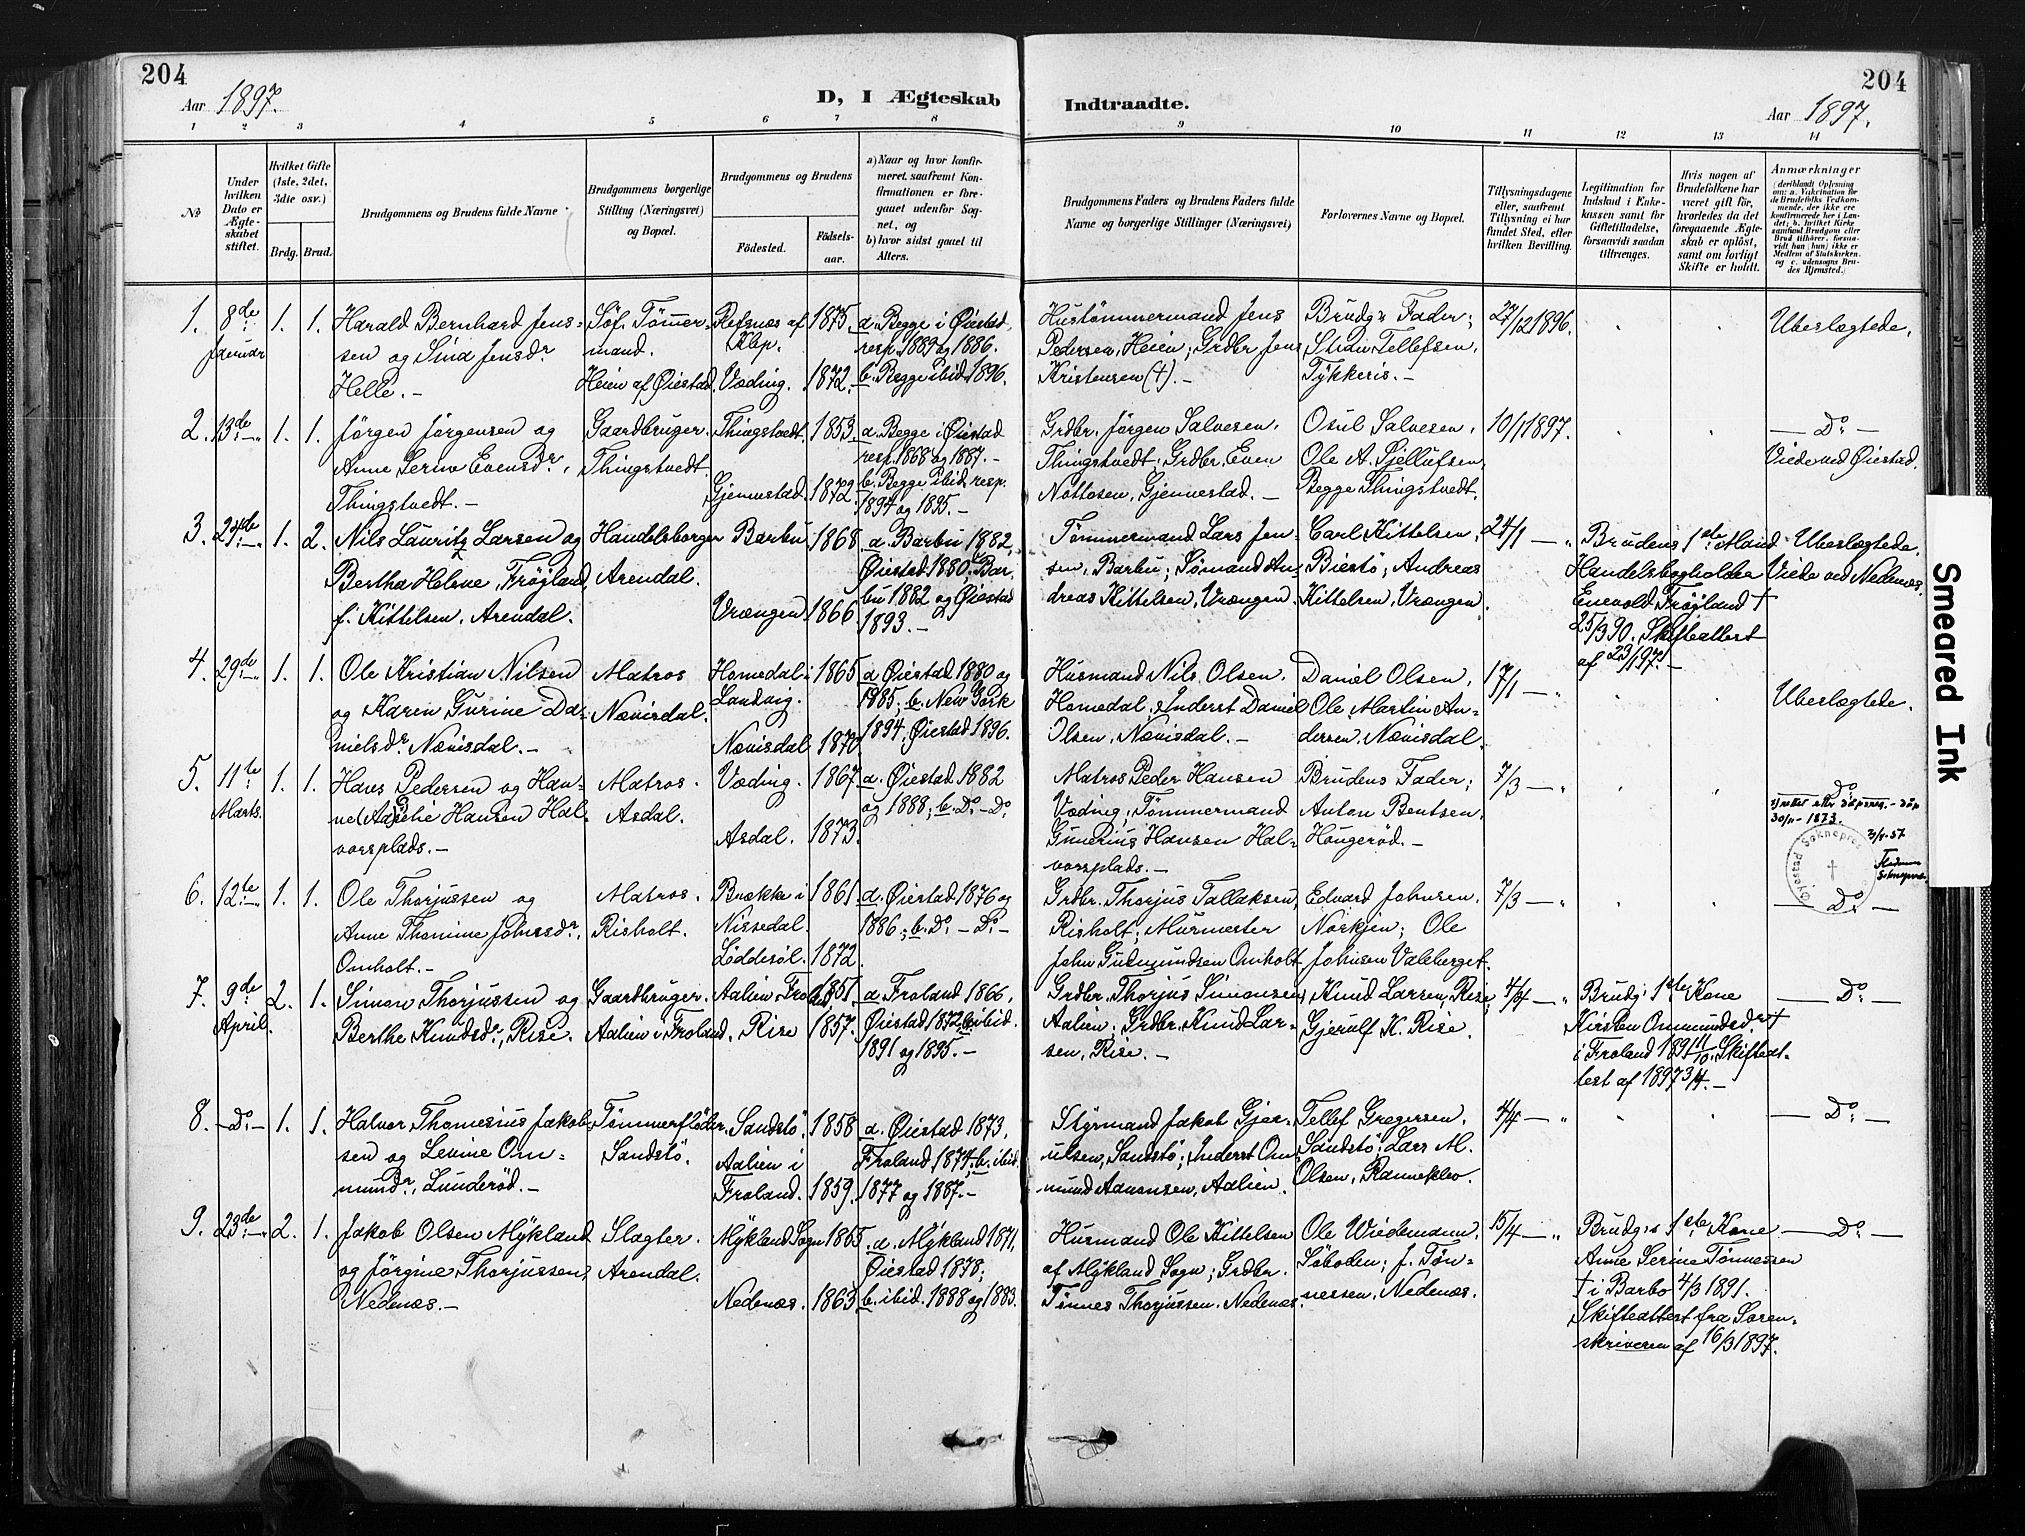 204
Aar 1897.
D, I Ægteskab
Indtraadte.
Aar 1897.
204
1 2 3 4 5 6 7 8 9 10 11 12 13 14
No
Under hvilken Dato er Ægteskabet stiftet.
Hvilket Gifte (1ste, 2det, 3die osv.)
Brdg. Brud.
Brudgommens og Brudens fulde Navne
Brudgommens borgerlige Stilling (Næringsvei) og Bopæl.
Brudgommens og Brudens
Fødested.
Fødselsaar.
a) Naar og hvor konfirmeret, saafremt Konfirmationen er foregaaet udenfor Sognet, og
b) hvor sidst gaaet til Alters.
Brudgommens Faders og Brudens Faders fulde Navne og borgerlige Stillinger (Næringsvei)
Forlovernes Navne og Bopæl.
Tillysningsdagene eller, saafremt Tillysning ei har fundet Sted, efter hvilken Bevilling.
Legitimation for Indskud i Enkekassen samt for Giftetilladelse, forsaavidt saadan tiltrænges.
Hvis nogen af Brudefolkene har været gift før, hvorledes da det foregaaende Ægteskab er opløst, samt om lovligt Skifte er holdt.
Anmærkninger
(deriblandt Oplysning om: a. Vakcination for de Brudefolks Vedkommende, der ikke ere konfirmerede her i Landet; b. hvilket Kirkesamfund Brudgom eller Brud tilhører, forsaavidt han (hun) ikke er Medlem af Statskirken, og c. udensogns Brudes Hjemsted.)
1. 8de Januar 1. 1. Harald Bernhard Jens-
sen og Sina Jensdr
Helle. -
Söf. Tömmer-
mand.
Heien af Øiestad.
Refsnæs af
Kbp. 1875.
Væding. 1872.
a. Begge i Øiestad
resp. 1889 og 1886.
b. Begge ibid. 1896.
Hustömmermand Jens
Pedersen, Heien; Grdbr Jens
Kristensen (†). -
Brudg's Fader;
Stian Tellefsen,
Tykkeris. -
27/12 1896.
Ubeslægtede.
2. 13de 1. 1. Jørgen Jørgensen og
Anne Serine Evensdr,
Thingstvedt. -
Gaardbruger.
Thingstvedt.
Thingstvedt. 1853.
Gjennestad. 1872.
a. Begge i Øiestad
resp. 1868 og 1887. -
b. Begge ibid. resp.
1894 og 1895. -
Grdbr. Jørgen Salvesen,
Thingstvedt; Grdbr. Even
Nottosen, Gjennestad. -
Osul Salvesen,
Ole A. Sjellufsen,
Begge Thingstvedt.
10/1 1897.
Do
Viede ved Øiestad.
3. 1. 2. Nils Lauritz Larsen og
Bertha Helene Frøyland,
f. Kittelsen, Arendal.
Handelsborger
Arendal.
Barbu 1868
Vrængen 1866
a. Barbu 1882,
Øiestad 1880; Bar-
bu 1882 og Øiestad
1893. -
Tømmermand Lars Jen-
sen, Barbu; Sømand An-
dreas Kittelsen, Vrængen.
Carl Kittelsen,
Biestø; Andreas
Kittelsen, Vrængen.
24/1 - "
Brudens 1ste Mand
Handelsbogholder
Enevold Frøyland †
25/3 90. Skifteattest
af 23/1 97. -
Ubeslægtede.
Viede ved Nedenæs.
4. 29de 1. 1. Ole Kristian Nilsen
og Karen Gurine Da-
nielsdr Nævisdal. -
Matros
Nævisdal.
Homedal i
Landvig. 1865
Nævisdal 1870.
a Øiestad 1880 og
1885; b. New York
1894, Øiestad 1896.
Husmand Nils Olsen,
Homedal, Inderst Daniel
Olsen, Nævisdal. -
Daniel Olsen,
Ole Martin An-
dersen, Nævisdal.
17/1 - "
Ubeslægtede.
5. 11te Marts. 1. 1. Hans Pedersen og Han-
ne Hansen Hal-
vorsplads. -
Matros.
Asdal.
Væding. 1867.
Asdal. 1873.
a. Øiestad 1882
og 1888; b. Do - Do.
Matros Peder Hansen
Væding; Tømmermand
Gunerius Hansen Hal-
vorsplads. -
Brudens Fader;
Anton Bentsen,
Hougerød. -
7/3 - "
Do
rettet etter dåpsreg. - døp
1873.
Øyestad Sokneprest
6. 12te 1. 1. Ole Thorjussen og
Anne Thomine Johnsdr,
Omholt. -
Matros.
Risholt.
Brække i
Nissedal 1861
Løddesøl. 1872.
a. Øiestad 1876 og
1886; b. Do - Do -
Grdbr. Thorjus Tallaksen,
Risholt; Murmester
John Gudmundsen Omholt
Edvard Johnsen,
Nørkjen; Ole
Johnsen Valeberget.
7/3 - "
Do
7. 9de April. 2. 1. Simon Thorjussen og
Berthe Knudsdr, Rise.
Gaardbruger.
Aalien i Froland.
Aalien, Froland 1851
Rise 1857.
a. Froland 1866,
Øiestad 1872; b. ibid.
1891 og 1895. -
Grdbr. Thorjus Simonsen,
Aalien; Grdbr. Knud Lar-
sen, Rise. -
Knud Larsen, Rise;
Gjerulf K. Rise.
4/4 - "
Brudg's 1ste Kone
Kirsten Ommundsdr †
i Froland 1891 11/10. Skifteat-
test af 1897 3/4. -
Do
8. Do 1. 1. Halvor Thomesius Jakob-
sen og Levine Om-
mundr, Lunderød. -
Tømmerfløder.
Sandstø.
Sandstø. 1858
Aalien i
Froland. 1859.
a. Øiestad 1873,
Froland 1874; b. ibid.
1877 og 1887. -
Styrmand Jakob Gjer-
ulsen, Sandstø; Inderst Om-
mund Aanonsen, Aalien.
Tellef Gregersen,
Sandstø; Lars M.
Olsen, Ramneklev.
4/4 - "
Do
9. 23de 2. 1. Jakob Olsen Mykland
og Jørgine Thorjussen,
Nedenæs. -
Slagter.
Arendal.
Mykland Sogn 1865.
Nedenæs. 1863
a. Mykland 1871,
Øiestad 1878;
b. ibid. 1888 og 1883.
Husmand Ole Kittelsen
af Mykland Sogn; Grdbr.
Tønnes Thorjussen, Nedenæs.
Ole Wiedemann,
Søboden; J. Tøn-
nessen, Nedenæs.
15/4 - "
Brudg's 1ste Kone
Anne Serine Tønnessen
† i Barbo 4/3 1891.
Skifteattest fra Soren-
skriveren af 16/3 1897.
Do
Smeared Ink